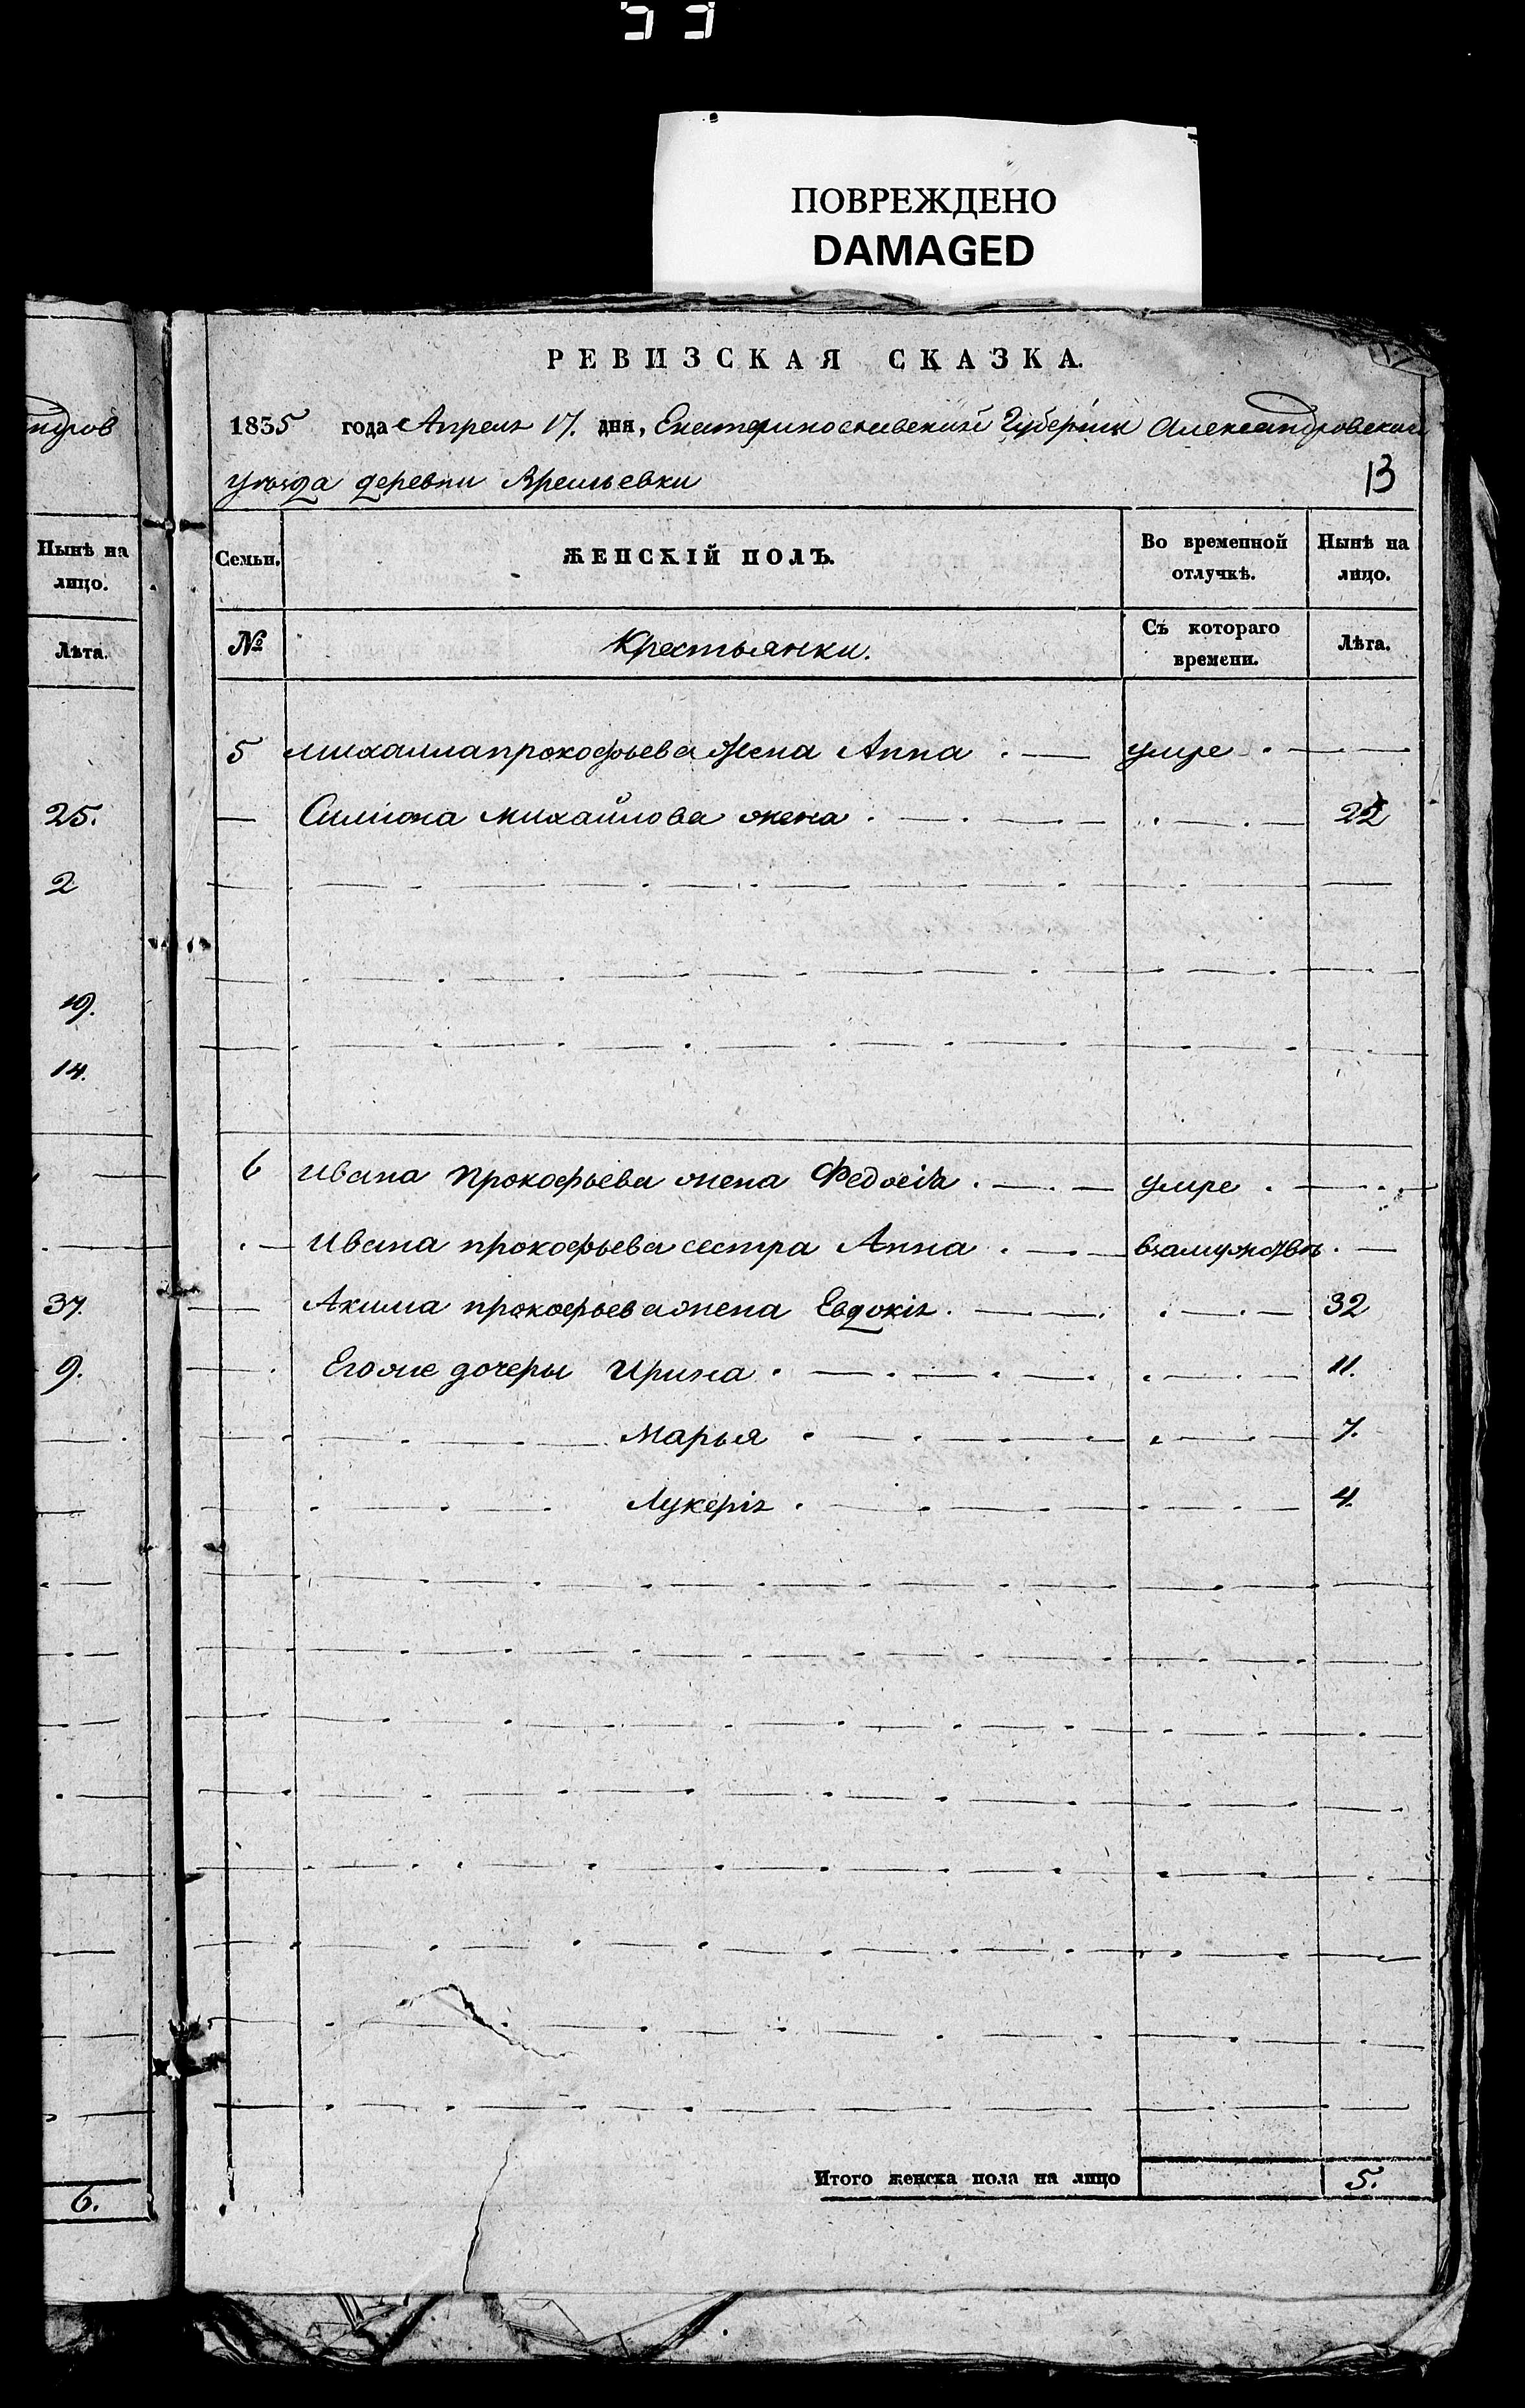 ПОВРЕЖДЕНО
DAMAGED
РЕВИЗСКАЯ СКАЗКА.
1835 года Апреля 17. дня, Екатеринославской Губернии Александровского
уѣзда деревни
13
Нынѣ на
лицо.
Лѣта.
25.
2
19.
14.
37.
9.
6.
Семьи. ЖЕНСКІЙ ПОЛЪ. Во временной отлучкѣ. Нынѣ на лицо.
№ Крестьянки. Съ котораго времени. Лѣта.
5 Михаила прокофьева жена Анна умре
Симиона михайлова жена 22
6 Ивана Прокофьева жена Федосія умре
Ивана прокофьева сестра Анна взамужствѣ
Акима прокофьева жена Евдокія 32
Егоже дочеры Ирина 11.
Марья 7.
Лукерія 4.
Итого женска пола на лицо 5.